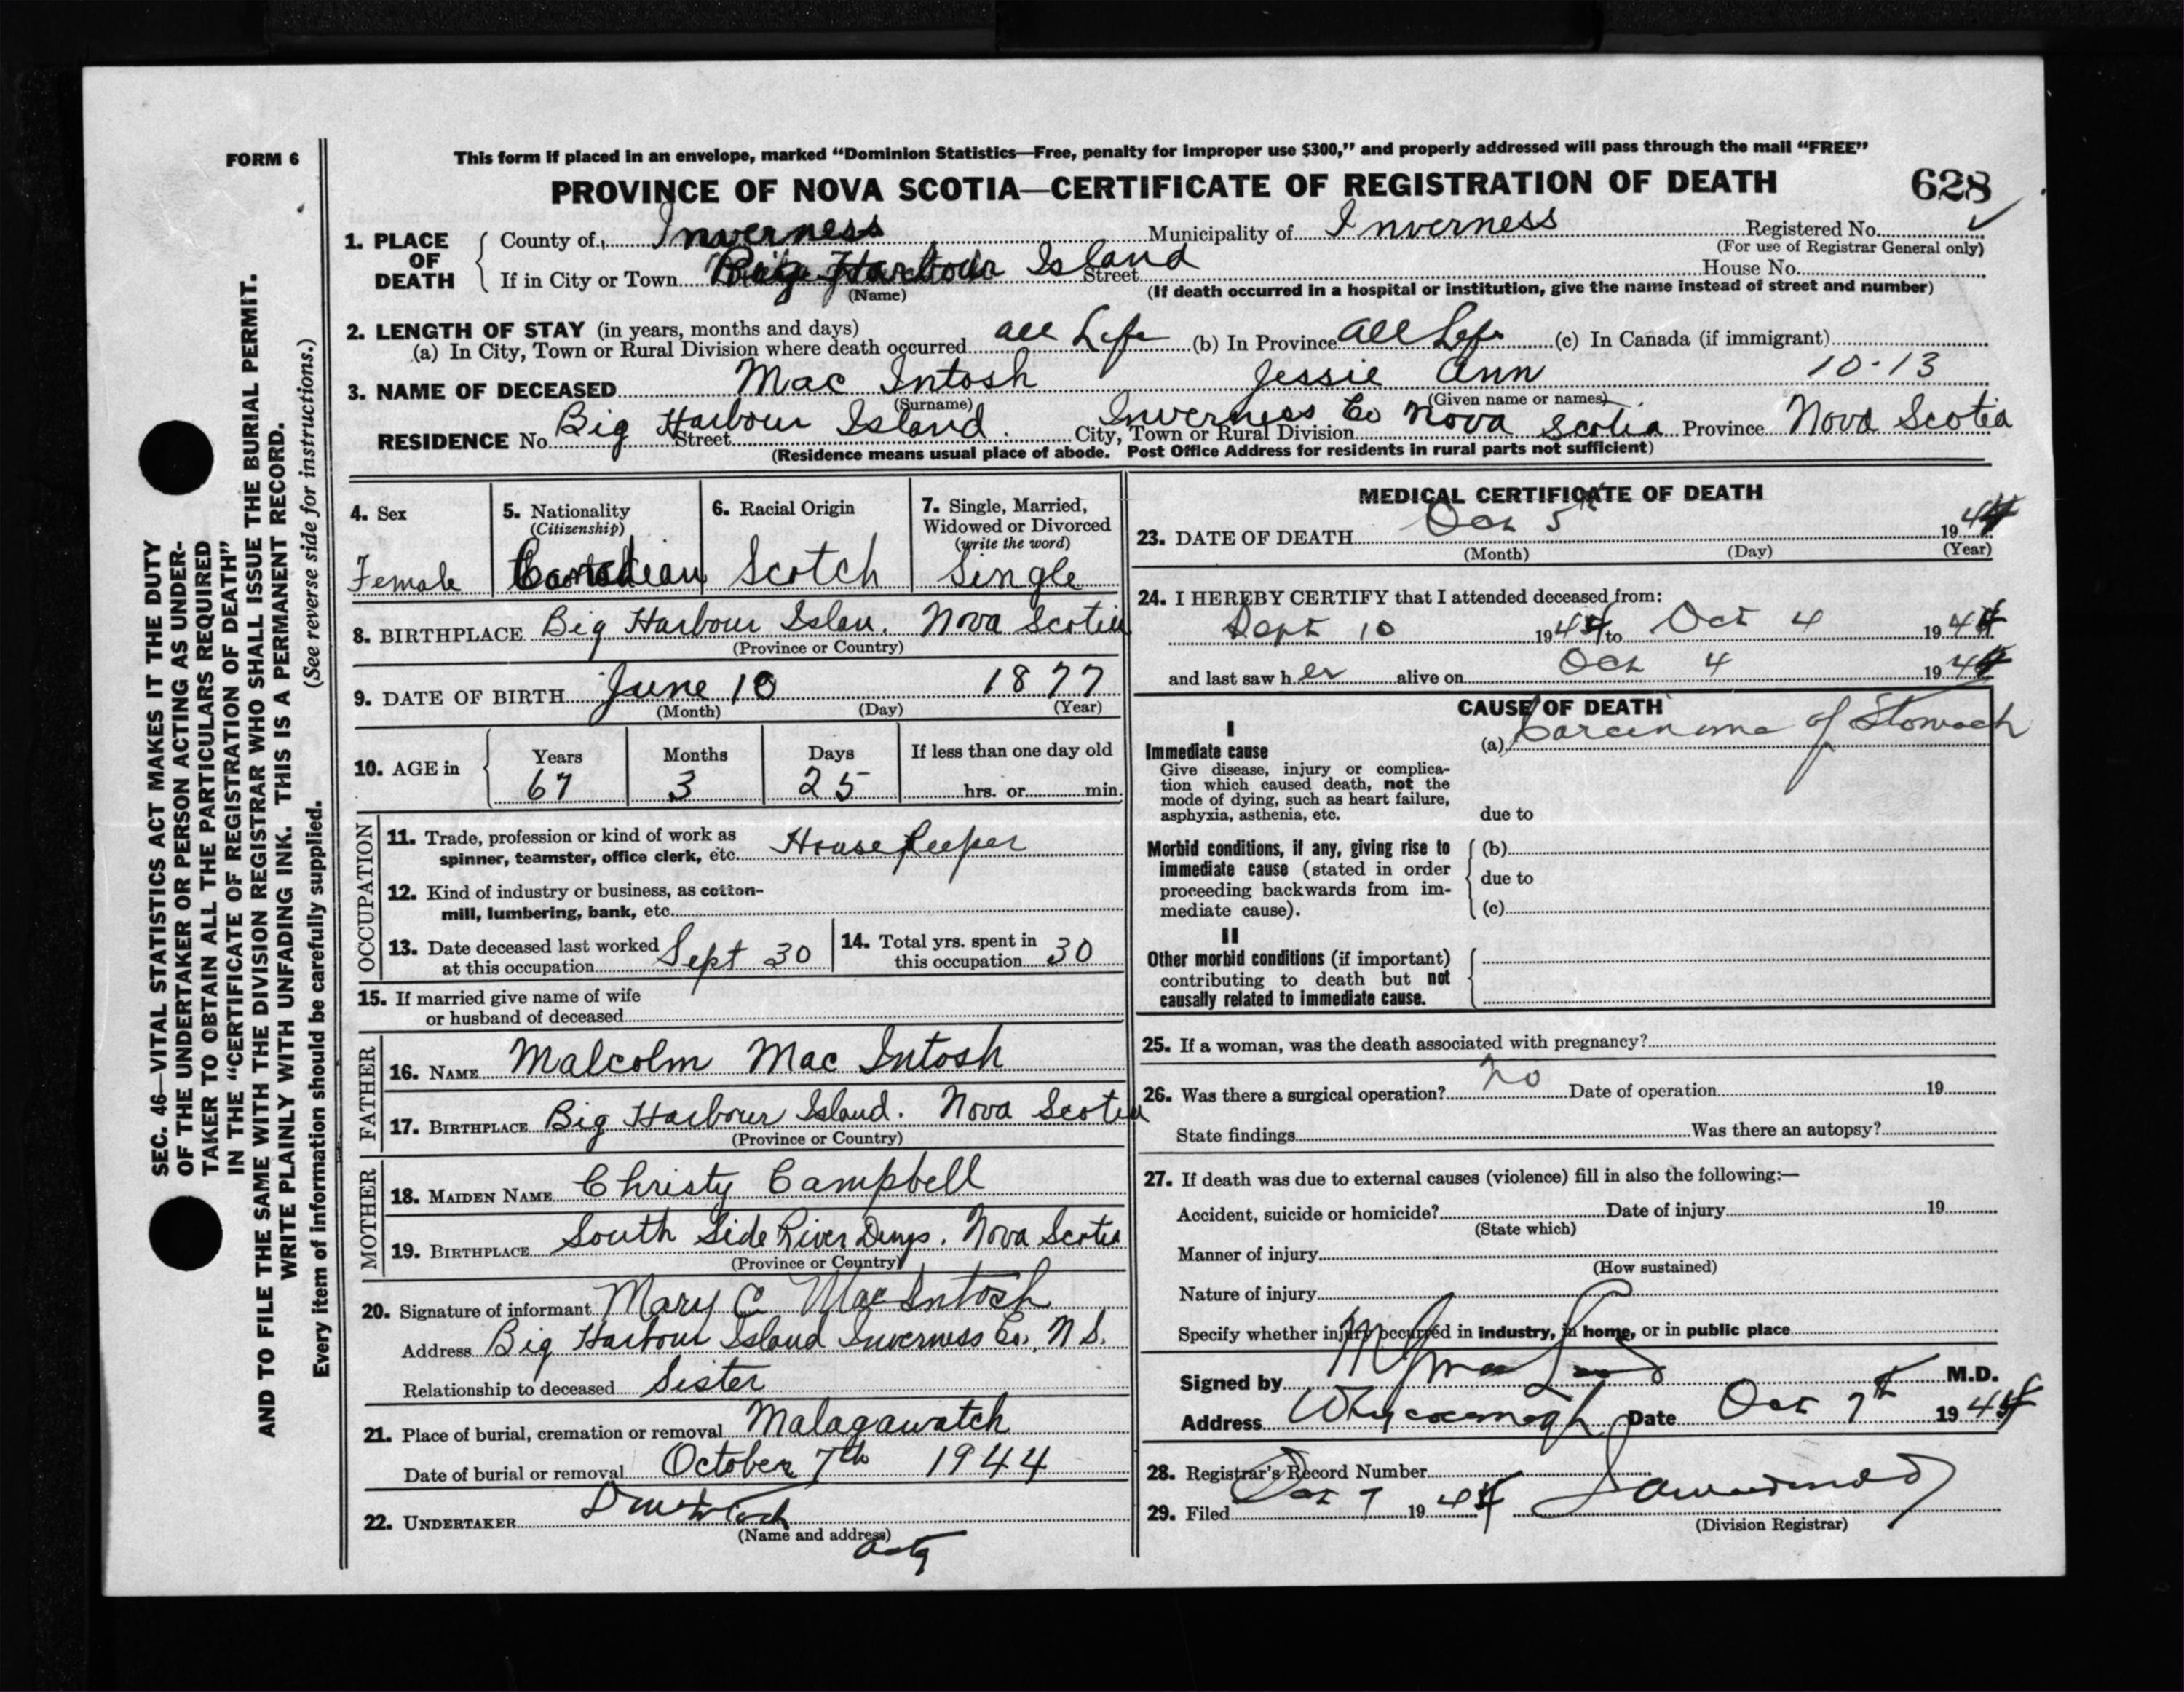 FORM 6
This form if placed in an envelope, marked "Dominion Statistics—Free, penalty for improper use $300," and properly addressed will pass through the mail "FREE"
PROVINCE OF NOVA SCOTIA—CERTIFICATE OF REGISTRATION OF DEATH 628
1. PLACE OF DEATH County of Inverness Municipality of Inverness Registered No.
(For use of Registrar General only)
If in City or Town Big Harbour Island Street House No.
(Name) (If death occurred in a hospital or institution, give the name instead of street and number)
2. LENGTH OF STAY (in years, months and days)
(a) In City, Town or Rural Division where death occurred all Life (b) In Province All Life (c) In Canada (if immigrant)
3. NAME OF DECEASED Mac Intosh Jessie Ann 10-13
(Surname) (Given name or names)
RESIDENCE No. Big Harbour Island. Street City, Town or Rural Division Inverness Co Nova Scotia Province Nova Scotia
(Residence means usual place of abode. Post Office Address for residents in rural parts not sufficient)
4. Sex
Female
5. Nationality
(Citizenship)
Canadian
6. Racial Origin
Scotch
7. Single, Married,
Widowed or Divorced
(write the word)
Single
8. BIRTHPLACE Big Harbour Islan. Nova Scotia
(Province or Country)
9. DATE OF BIRTH June 10 1877
(Month) (Day) (Year)
10. AGE in Years Months Days If less than one day old
67 3 25 hrs. or min.
OCCUPATION
11. Trade, profession or kind of work as
spinner, teamster, office clerk, etc. House Keeper
12. Kind of industry or business, as cotton-
mill, lumbering, bank, etc.
13. Date deceased last worked
at this occupation Sept 30
14. Total yrs. spent in
this occupation 30
15. If married give name of wife
or husband of deceased
FATHER
16. NAME Malcolm Mac Intosh
17. BIRTHPLACE Big Harbour Island. Nova Scotia
(Province or Country)
MOTHER
18. MAIDEN NAME Christy Campbell
19. BIRTHPLACE South Side River Denys. Nova Scotia
(Province or Country)
20. Signature of informant Mary C MacIntosh
Address Big Harbour Island Inverness Co. N S.
Relationship to deceased Sister
21. Place of burial, cremation or removal Malagawatch
Date of burial or removal October 7th 1944
22. UNDERTAKER
(Name and address)
MEDICAL CERTIFICATE OF DEATH
23. DATE OF DEATH Oct 5th 1944
(Month) (Day) (Year)
24. I HEREBY CERTIFY that I attended deceased from:
Sept 10 1944 to Oct 4 1944
and last saw her alive on Oct 4 1944
CAUSE OF DEATH
I
Immediate cause
Give disease, injury or complica-
tion which caused death, not the
mode of dying, such as heart failure,
asphyxia, asthenia, etc.
(a) Carcinoma of Stomach
due to
Morbid conditions, if any, giving rise to
immediate cause (stated in order
proceeding backwards from im-
mediate cause).
(b)
due to
(c)
II
Other morbid conditions (if important)
contributing to death but not
causally related to immediate cause.
25. If a woman, was the death associated with pregnancy?
26. Was there a surgical operation? No Date of operation 19
State findings Was there an autopsy?
27. If death was due to external causes (violence) fill in also the following:—
Accident, suicide or homicide? Date of injury 19
(State which)
Manner of injury
(How sustained)
Nature of injury
Specify whether injury occurred in industry, in home, or in public place
Signed by M.D.
Address Whycocomagh Date Oct 7th 1944
28. Registrar's Record Number
29. Filed Oct 7 1944
(Division Registrar)
SEC. 46—VITAL STATISTICS ACT MAKES IT THE DUTY
OF THE UNDERTAKER OR PERSON ACTING AS UNDER-
TAKER TO OBTAIN ALL THE PARTICULARS REQUIRED
IN THE "CERTIFICATE OF REGISTRATION OF DEATH"
AND TO FILE THE SAME WITH THE DIVISION REGISTRAR WHO SHALL ISSUE THE BURIAL PERMIT.
WRITE PLAINLY WITH UNFADING INK. THIS IS A PERMANENT RECORD.
(See reverse side for instructions.)
Every item of information should be carefully supplied.